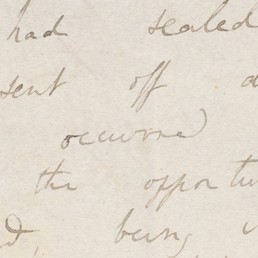 had sealed
sent off
occurred
the opportu
being